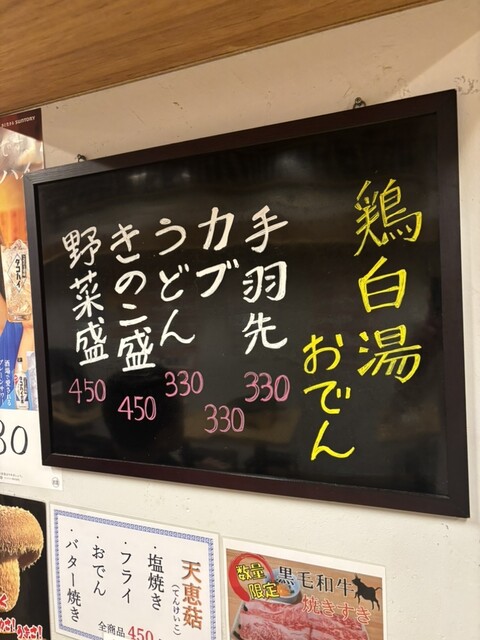 鶏白湯
おでん
手羽先
330
カブ
330
うどん
330
きのこ盛
450
野菜盛
450
SUNTORY
タコハイ
30
天恵菇
(てんけいこ)
・塩焼き
・フライ
・おでん
・バター焼き
全商品450
数量
限定
黒毛和牛
焼きすき